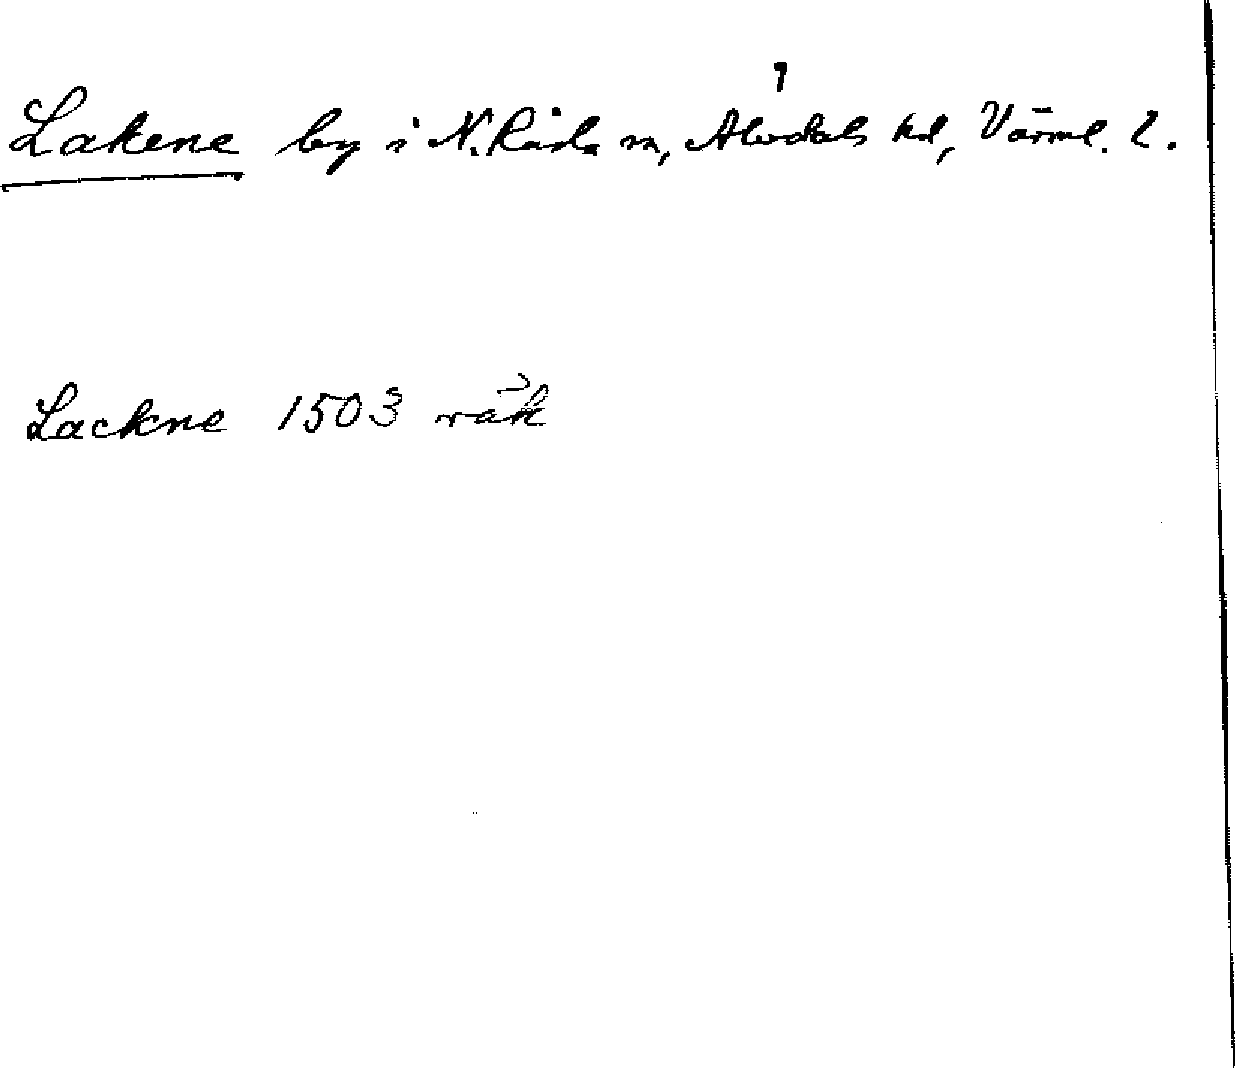 Lakene by i N. Råda sn, Älvdals hd, Värml. l.
Lackne 1503 räk